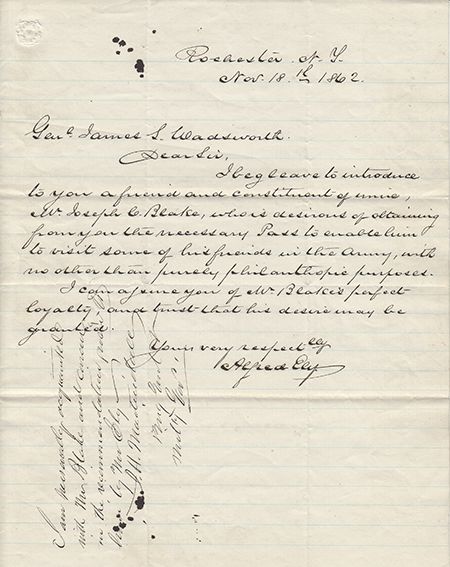 Rochester N.Y.
Nov. 18.th 1862.
Genl. James S. Wadsworth.
Dear Sir,
I beg leave to introduce
to you a friend and constituent of mine,
Mr. Joseph C. Blake, who is desirous of obtaining
from you the necessary Pass to enable him
to visit some of his friends in the Army, with
no other than purely philanthropic purposes.
I can assure you of Mr. Blake's perfect
loyalty, and trust that his desire may be
granted.
Yours very respectfly
Alfred Ely
I am personally acquainted
with Mr. Blake and concur
in the recommendation
by Mr Ely
Brig Genl